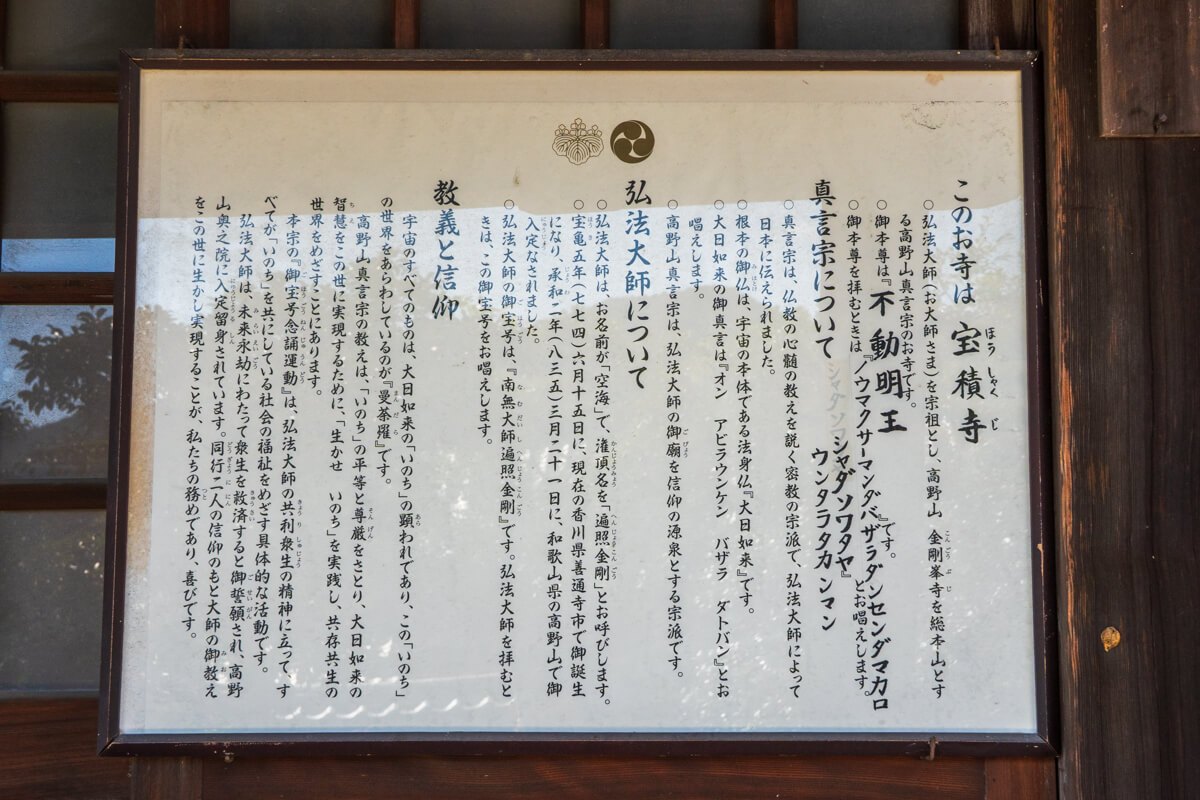 このお寺は 宝積寺
○弘法大師(お大師さま)を宗祖とし、高野山 金剛峯寺を総本山とす
る高野山真言宗のお寺です。
○御本尊は『不動明王』です。
○御本尊を拝むときは『ノウマクサーマンダバザラダンセンダマカロ
シャダソワタヤ
ウンタラタカンマン
』とお唱えします。
真言宗について
○真言宗は、仏教の心髄の教えを説く密教の宗派で、弘法大師によって
日本に伝えられました。
○根本の御仏は、宇宙の本体である法身仏『大日如来』です。
○大日如来の御真言は『オン アビラウンケン バザラ ダトバン』とお
唱えします。
○高野山真言宗は、弘法大師の御廟を信仰の源泉とする宗派です。
弘法大師について
○弘法大師は、お名前が「空海」で、灌頂名を「遍照金剛」とお呼びします。
○宝亀五年(七七四)六月十五日に、現在の香川県善通寺市で御誕生
になり、承和二年(八三五)三月二十一日に、和歌山県の高野山で御
入定なされました。
○弘法大師の御宝号は、『南無大師遍照金剛』です。弘法大師を拝むと
きは、この御宝号をお唱えします。
教義と信仰
宇宙のすべてのものは、大日如来の「いのち」の顕われであり、この「いのち」
の世界をあらわしているのが『曼荼羅』です。
高野山真言宗の教えは、「いのち」の平等と尊厳をさとり、大日如来の
智慧をこの世に実現するために、「生かせ いのち」を実践し、共存共生の
世界をめざすことにあります。
本宗の『御宝号念誦運動』は、弘法大師の共利衆生の精神に立って、す
べてが「いのち」を共にしている社会の福祉をめざす具体的な活動です。
弘法大師は、未来永劫にわたって衆生を救済すると御誓願され、高野
山奥之院に入定留身されています。同行二人の信仰のもと大師の御教え
をこの世に生かし実現することが、私たちの務めであり、喜びです。